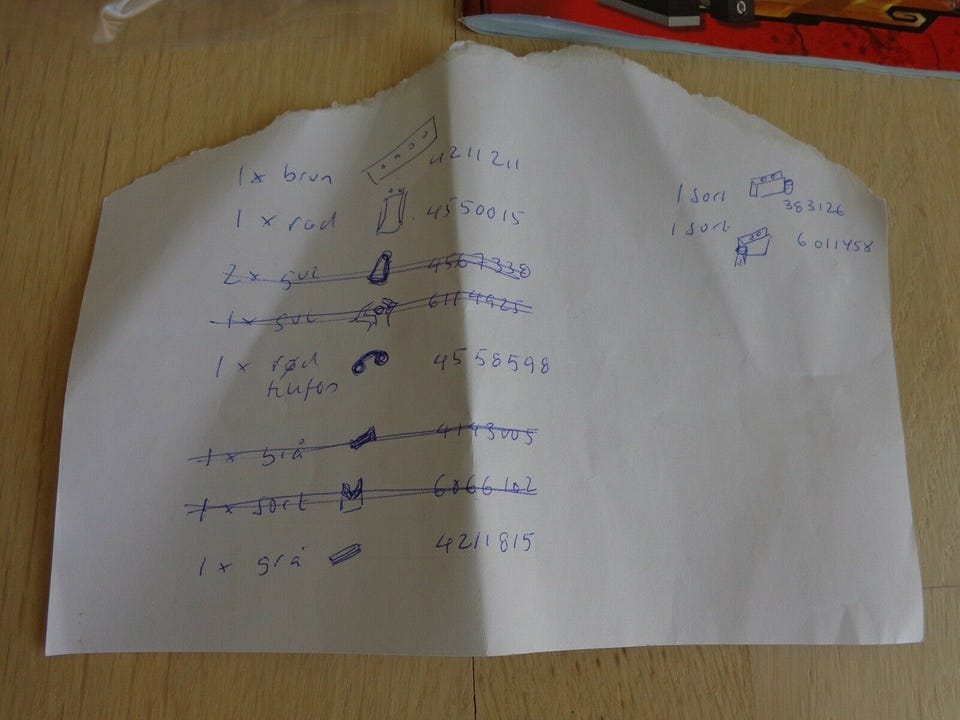 1 x brun 4211211
1 x rød 4550015
2 x gul 4567338
1 x gul 6114925
1 x rød 4558598
1 x grå 4143005
1 x sort 6066102
1 x grå 4211815
1 sort 383126
1 sort 6011458